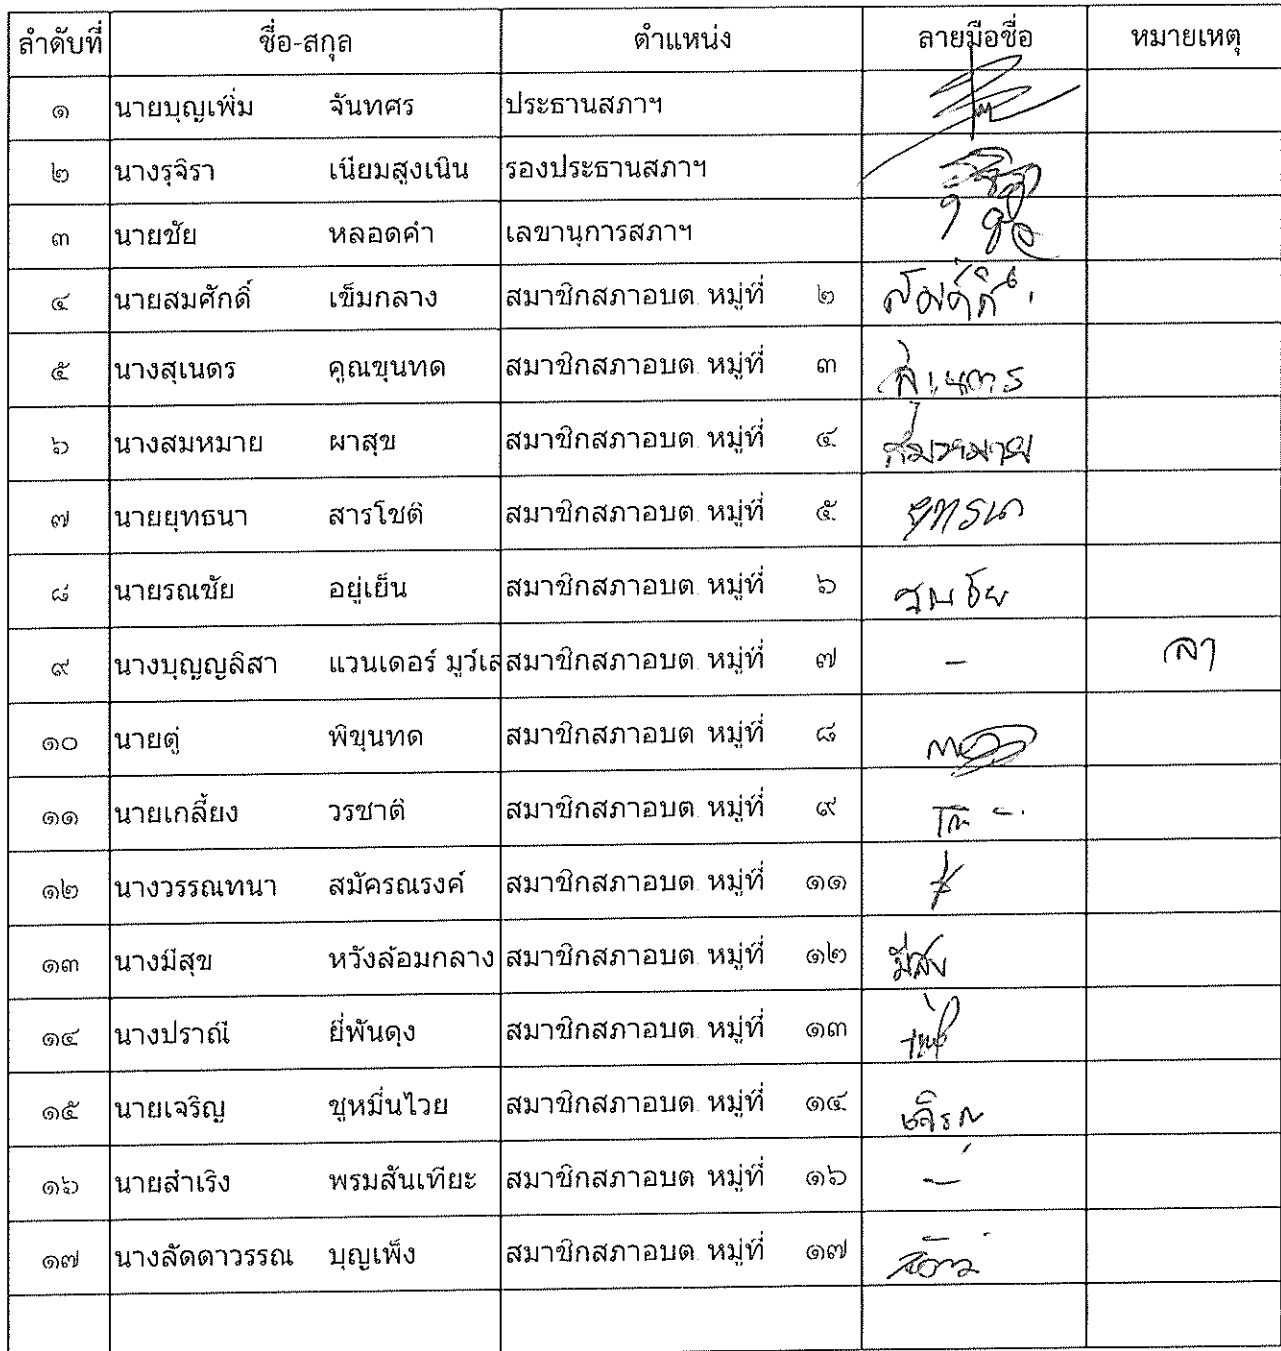 ลำดับที่ ชื่อ-สกุล ตำแหน่ง ลายมือชื่อ หมายเหตุ
๑ นายบุญเพิ่ม จันทศร ประธานสภาฯ
๒ นางรุจิรา เนียมสูงเนิน รองประธานสภาฯ
๓ นายชัย หลอดคำ เลขานุการสภาฯ
๔ นายสมศักดิ์ เข็มกลาง สมาชิกสภาอบต. หมู่ที่ ๒ สมศักดิ์
๕ นางสุเนตร คูณขุนทด สมาชิกสภาอบต. หมู่ที่ ๓ สุเนตร
๖ นางสมหมาย ผาสุข สมาชิกสภาอบต. หมู่ที่ ๔ สมหมาย
๗ นายยุทธนา สารโชติ สมาชิกสภาอบต. หมู่ที่ ๕
๘ นายรณชัย อยู่เย็น สมาชิกสภาอบต. หมู่ที่ ๖
๙ นางบุญญลิสา แวนเดอร์ มูว์เล สมาชิกสภาอบต. หมู่ที่ ๗ - ลา
๑๐ นายตู่ พิขุนทด สมาชิกสภาอบต. หมู่ที่ ๘
๑๑ นายเกลี้ยง วรชาติ สมาชิกสภาอบต. หมู่ที่ ๙
๑๒ นางวรรณทนา สมัครณรงค์ สมาชิกสภาอบต. หมู่ที่ ๑๑
๑๓ นางมีสุข หวังล้อมกลาง สมาชิกสภาอบต. หมู่ที่ ๑๒ มีสุข
๑๔ นางปราณี ยี่พันดุง สมาชิกสภาอบต. หมู่ที่ ๑๓
๑๕ นายเจริญ ชูหมื่นไวย สมาชิกสภาอบต. หมู่ที่ ๑๔ เจริญ
๑๖ นายสำเริง พรมสันเทียะ สมาชิกสภาอบต. หมู่ที่ ๑๖ -
๑๗ นางลัดดาวรรณ บุญเพ็ง สมาชิกสภาอบต. หมู่ที่ ๑๗